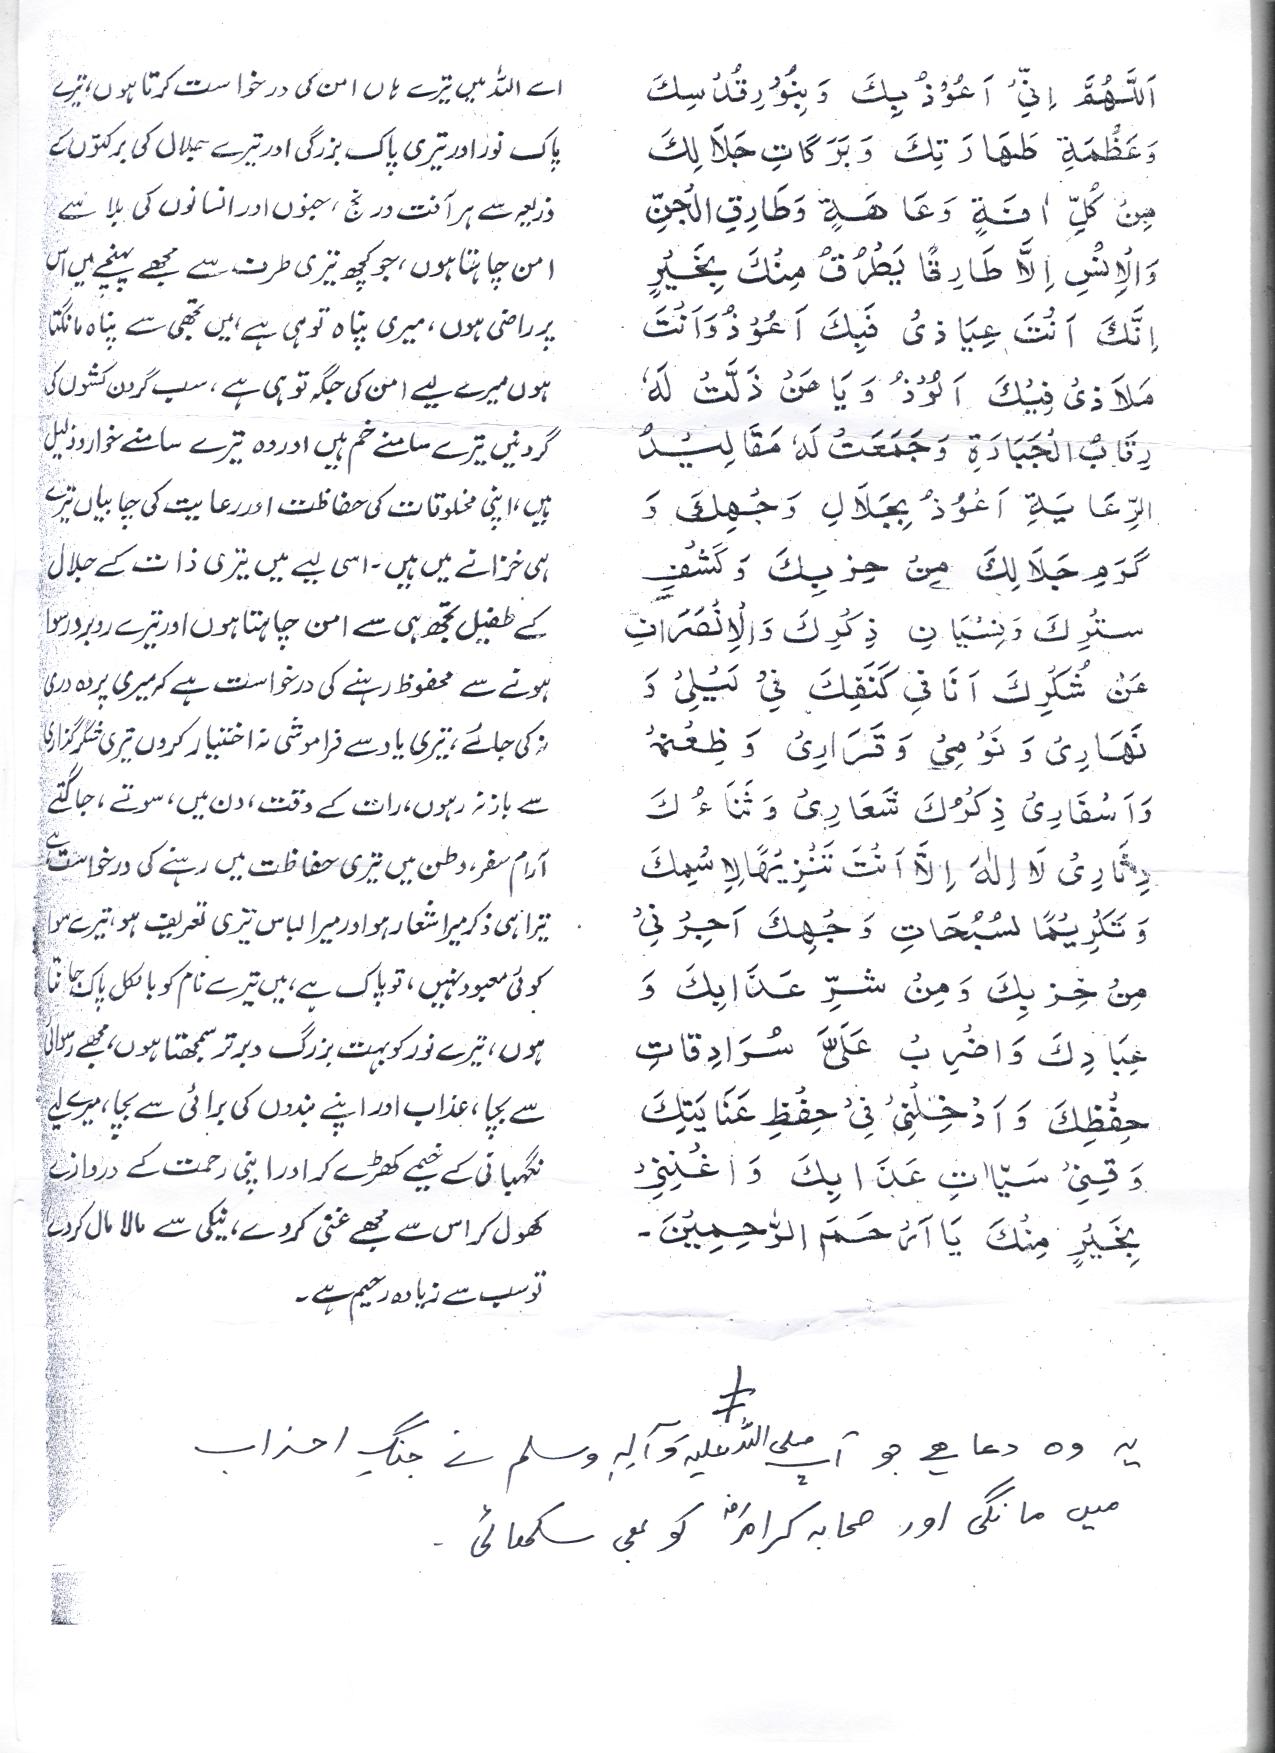 اَللّٰهُمَّ اِنِّیْ اَعُوْذُ بِكَ وَ بِنُوْرِ قُدْسِكَ
وَعَظُمَةِ طَهَارَتِكَ وَ بَرَكَاتِ جَلَالِكَ
مِنْ كُلِّ اٰفَةٍ وَعَاهَةٍ وَطَارِقِ الْجِنِّ
وَالْاِنْسِ اِلَّا طَارِقًا يَطْرُقُ مِنْكَ بِخَيْرٍ
اِنَّكَ اَنْتَ عِيَاذِیْ فَبِكَ اَعُوْذُ وَاَنْتَ
مَلَاذِیْ فِيْكَ اَلُوْذُ وَ يَا مَنْ ذَلَّتْ لَهٗ
رِقَابُ الْجَبَادَةِ وَجَمَعَتْ لَهٗ مَقَالِيْدُ
الرِّعَايَةِ اَعُوْذُ بِجَلَالِ وَجْهِكَ وَ
كَرَمِ جَلَالِكَ مِنْ خِزْيِكَ وَكَشْفِ
سِتْرِكَ وَنِسْيَانِ ذِكْرِكَ وَالْاِنْصَرَافِ
عَنْ شُكْرِكَ اَنَا فِی كَنَفِكَ فِیْ لَيْلِیْ وَ
نَهَارِیْ وَ نَوْمِیْ وَ قَرَارِیْ وَ ظَعْنِیْ
وَاَسْفَارِیْ ذِكْرُكَ شَعَارِیْ وَ ثَنَاءُكَ
دِثَارِیْ لَا اِلٰهَ اِلَّا اَنْتَ تَنْزِيْهًا لِاِسْمِكَ
وَ تَكْرِيْمًا لِسُبْحَاتِ وَجْهِكَ اَجِرْنِیْ
مِنْ خِزْيِكَ وَمِنْ شَرِّ عَذَابِكَ وَ
عِبَادِكَ وَاضْرِبْ عَلَیَّ سُرَادِقَاتِ
حِفْظِكَ وَ اَدْخِلْنِیْ فِیْ حِفْظِ عَنَايَتِكَ
وَقِنِیْ سَيِّاٰتِ عَذَابِكَ وَاَغْنِنِیْ
بِخَيْرٍ مِنْكَ يَا اَرْحَمَ الرّٰحِمِيْنَ۔
اے اللہ میں تیرے ہاں امن کی درخواست کرتا ہوں، تیرے
پاک نور اور تیری پاک بزرگی اور تیرے جلال کی برکتوں کے
ذریعہ سے ہر آفت در نج، جنوں اور انسانوں کی بلا سے
امن چاہتا ہوں، جو کچھ تیری طرف سے مجھے پہنچے میں اس
پر راضی ہوں، میری پناہ تو ہی ہے، میں تجھی سے پناہ مانگتا
ہوں میرے لیے امن کی جگہ تو ہی ہے، سب گردن کشوں کی
گردنیں تیرے سامنے خم ہیں اور وہ تیرے سامنے خوار و ذلیل
ہیں، اپنی مخلوقات کی حفاظت اور رعایت کی چابیاں تیرے
ہی خزانے میں ہیں۔ اسی لیے میں تیری ذات کے جلال
کے طفیل تجھ ہی سے امن چاہتا ہوں اور تیرے روبرو رسوا
ہونے سے محفوظ رہنے کی درخواست ہے کہ میری پردہ دری
نہ کی جائے، تیری یاد سے فراموشی نہ اختیار کروں تیری شکر گذاری
سے باز نہ رہوں، رات کے وقت، دن میں، سوتے، جاگتے
آرام سفر، وطن میں تیری حفاظت میں رہنے کی درخواست ہے
تیرا ہی ذکر میرا شعار ہو اور میرا لباس تیری تعریف ہو، تیرے سوا
کوئی معبود نہیں، تو پاک ہے، میں تیرے نام کو بالکل پاک جانتا
ہوں، تیرے نور کو بہت بزرگ و برتر سمجھتا ہوں، مجھے رسوائی
سے بچا، عذاب اور اپنے بندوں کی برائی سے بچا، میرے لیے
نگہبانی کے خیمے کھڑے کر اور اپنی رحمت کے دروازے
کھول کر اس سے مجھے غنی کر دے، نیکی سے مالا مال کر دے
تو سب سے زیادہ رحیم ہے۔
یہ وہ دعا ہے جو آپ صلی اللہ علیہ وآلہٖ وسلم نے جنگِ احزاب
میں مانگی اور صحابہ کرامؓ کو بھی سکھائی۔